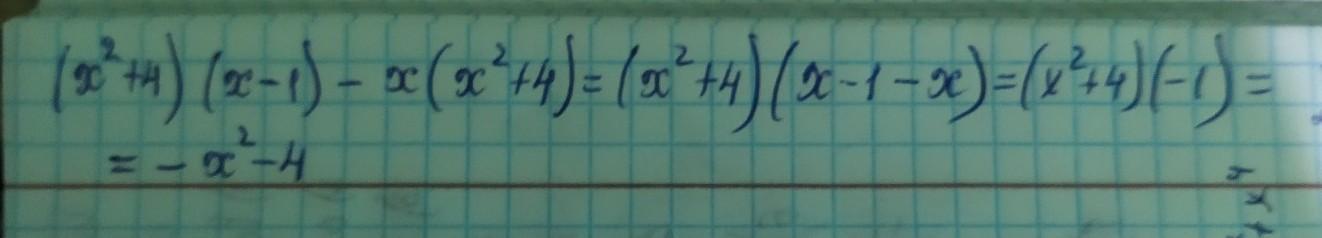 (x²+4)(x-1) - x(x²+4) = (x²+4)(x-1-x) = (x²+4)(-1) =
= -x²-4